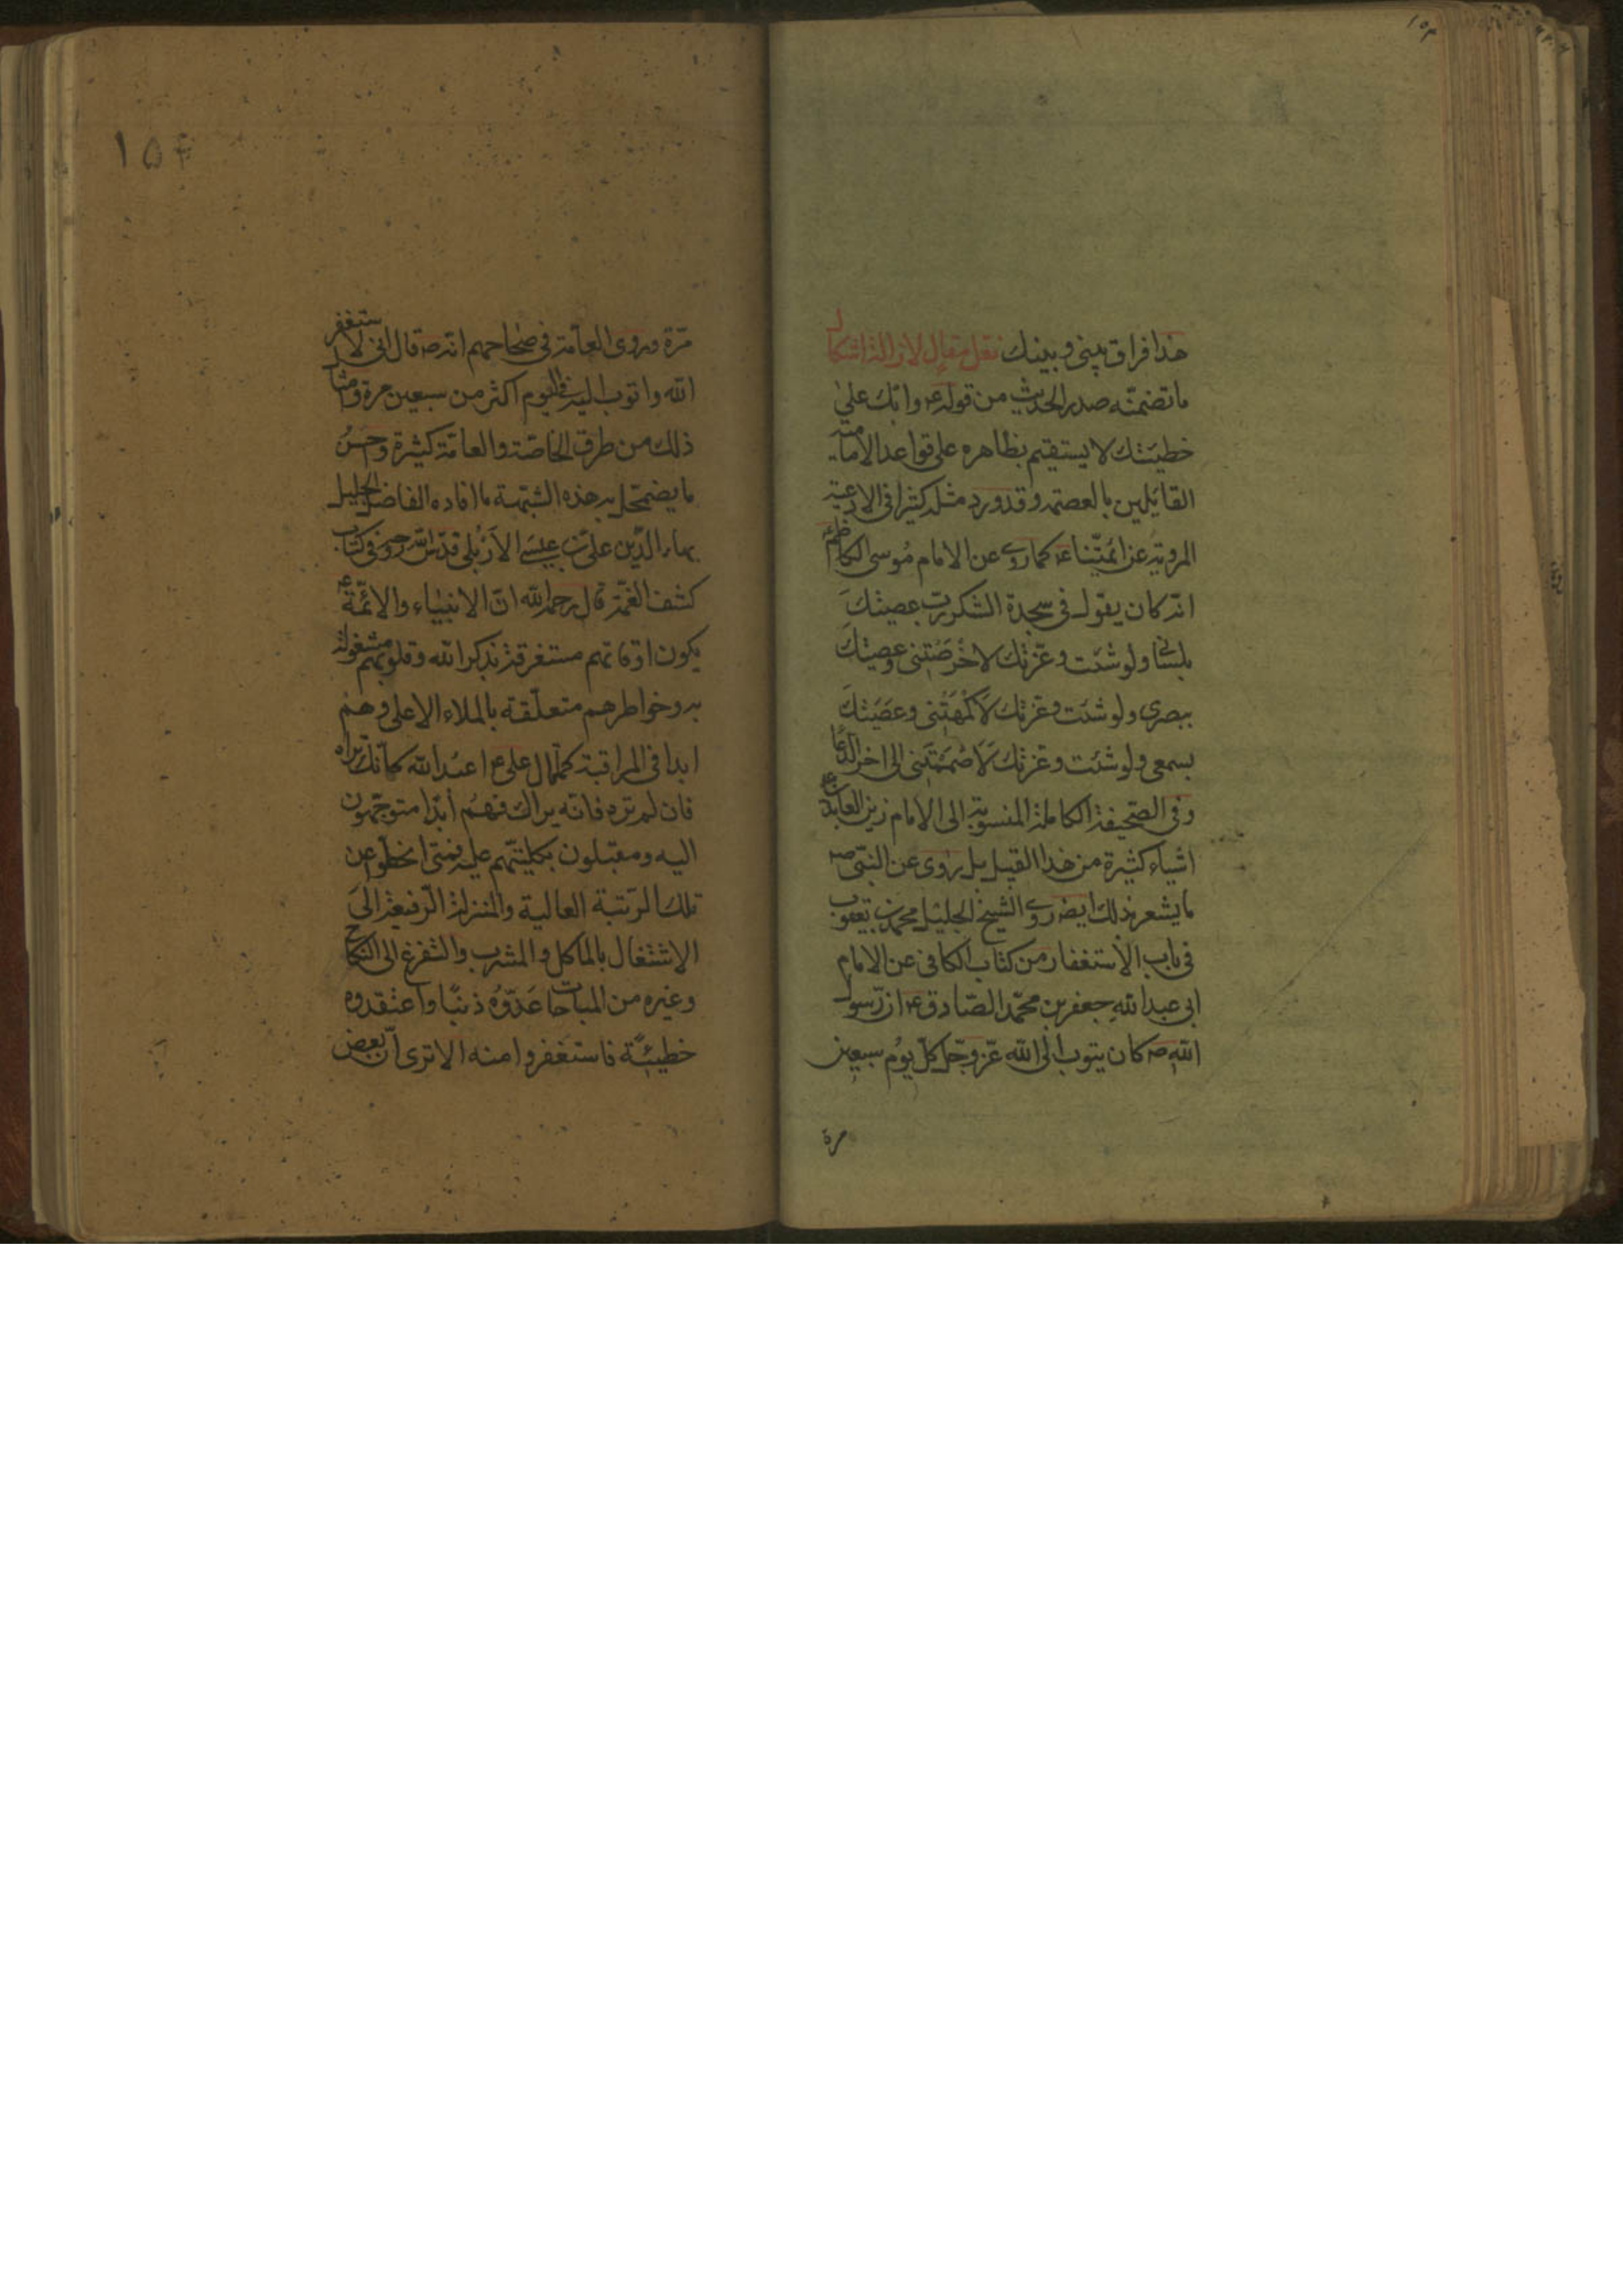 ١٥٣
هذا فراق بينى وبينك نقل مقال لازالة اشكال
ما تضمنه صدر الحديث من قوله ع وابك على
خطيئتك لا يستقيم بظاهره على قواعد الامامية
القايلين بالعصمة وقد ورد مثله كثيرا فى الادعية
المروية عن ائمتنا ع كما روى عن الامام موسى الكاظم ع
انه كان يقول فى سجدة الشكر رب عصيتك
بلسانى ولو شئت وعزتك لاخرصتنى وعصيتك
ببصرى ولو شئت وعزتك لاكمهتنى وعصيتك
بسمعى ولو شئت وعزتك لاصممتنى الى اخر الدعا
وفى الصحيفة الكاملة المنسوبة الى الامام زين العابدين ع
اشياء كثيرة من هذا القبيل بل روى عن النبى ص
ما يشعر بذلك ايض روى الشيخ الجليل محمد بن يعقوب
فى باب الاستغفار من كتاب الكافى عن الامام
ابى عبد الله جعفر بن محمد الصادق ع ان رسول
الله ص كان يتوب الى الله عز وجل كل يوم سبعين
مرة
١٥٤
مرة وروى العامة فى صحاحهم انه ص قال انى لاستغفر
الله واتوب اليه فى اليوم اكثر من سبعين مرة ومثال
ذلك من طرق الخاصة والعامة كثيرة وحسن
ما يضمحل به هذه الشبهة ما افاده الفاضل الجليل
بهاء الدين على بن عيسى الاربلى قدس الله روحه فى كتاب
كشف الغمة قال رحمه الله ان الانبياء والائمة ع
يكون اوقاتهم مستغرقة بذكر الله وقلوبهم مشغولة
به وخواطرهم متعلقة بالملاء الاعلى وهم
ابدا فى المراقبة كما قال على ع اعبد الله كانك تراه
فان لم تره فانه يراك فهم أبدا متوجهون
اليه ومقبلون بكليتهم عليه فمتى انحطوا عن
تلك الرتبة العالية والمنزلة الرفيعة الى
الاشتغال بالماكل والمشرب والتفرغ الى النكاح
وغيره من المباحات عدوه ذنبا واعتقدوه
خطيئة فاستغفروا منه الا ترى ان بعض